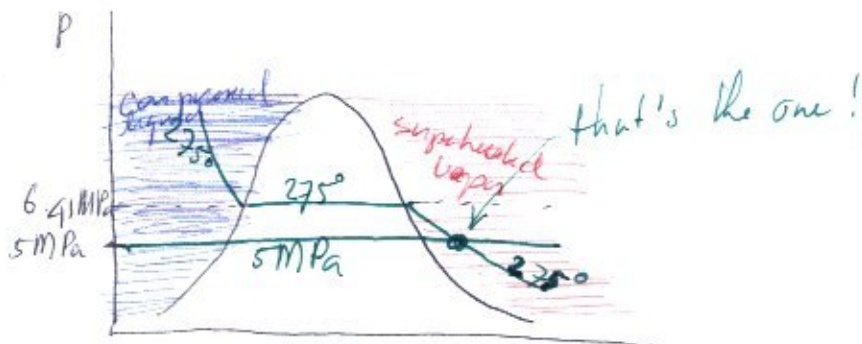 P
compressed
liquid
275°
superheated
vapor
that's the one!
6.41 MPa
275°
5 MPa
5 MPa
275°